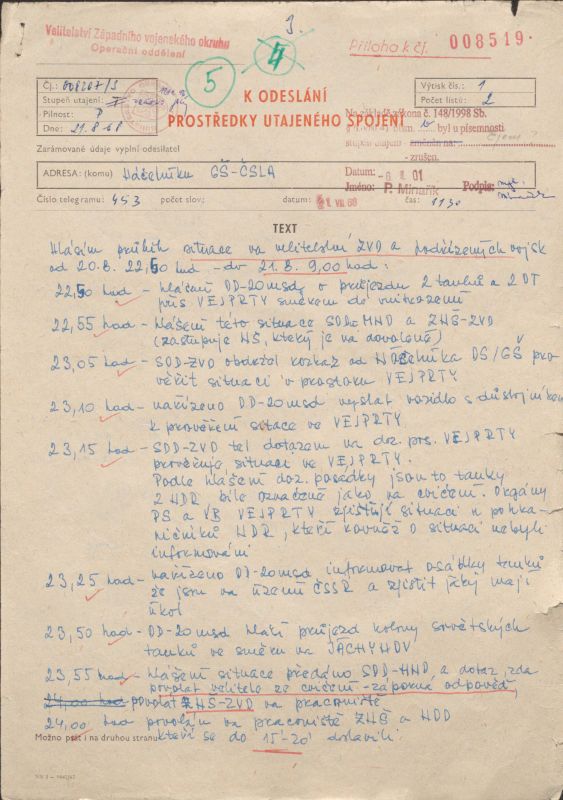 3.
Velitelství Západního vojenského okruhu
Operační oddělení
5
4
Příloha k čj. 008519
Čj.: 008207/3
Stupeň utajení:
Pilnost: P
Dne: 21.8.68
K ODESLÁNÍ
PROSTŘEDKY UTAJENÉHO SPOJENÍ
Výtisk čís.: 1
Počet listů: 2
Na základě zákona č. 148/1998 Sb.
byl u písemnosti
stupeň utajení
- zrušen.
Zarámované údaje vyplní odesílatel
ADRESA: (komu) Náčelníku GŠ-ČSLA
Datum: 01
Jméno: P. Minařík Podpis:
Číslo telegramu: 453 počet slov: datum: čas: 11 30
TEXT
Hlásím průběh situace na velitelství ZVO a podřízených vojsk
od 20.8. 22,50 hod - do 21.8. 9,00 hod:
22,50 hod - hlášení OD-20msd o průjezdu 2 tanků a 2 OT
přes VEJPRTY směrem do vnitrozemí
22,55 hod - Hlášení této situace SOD-MNO a ZNŠ-ZVO
(zastupuje NŠ, který je na dovolené)
23,05 hod - SOD-ZVO obdržel rozkaz od Náčelníka OS/GŠ pro
věřit situaci v prostoru VEJPRTY
23,10 hod - nařízeno OD-20msd vyslat vozidlo s důstojníkem
k prověření situace ve VEJPRTY
23,15 hod - SOD-ZVO tel dotazem na doz. prs. VEJPRTY
prověřuje situaci ve VEJPRTY.
Podle hlášení doz. posádky jsou to tanky
NDR bíle označené jako na cvičení. Orgány
PS a VB VEJPRTY zjišťují situaci u pohra-
ničníků NDR, kteří rovněž o situaci nebyli
informováni
23,25 hod - nařízeno OD-20msd informovat osádky tanků
že jsou na území ČSSR a zjistit jaký mají
úkol
23,50 hod - OD-20msd hlásí průjezd kolony sovětských
tanků ve směru na JÁCHYMOV
23,55 hod - Hlášení situace předáno SOD-MNO a dotaz, zda
povolat velitele ze cvičení - záporná odpověď,
24,00 hod povolat ZNŠ-ZVO na pracoviště
24,00 hod povoláni na pracoviště ZNŠ a NOO
Možno psát i na druhou stranu kteří se do 15'-20' dostavili.